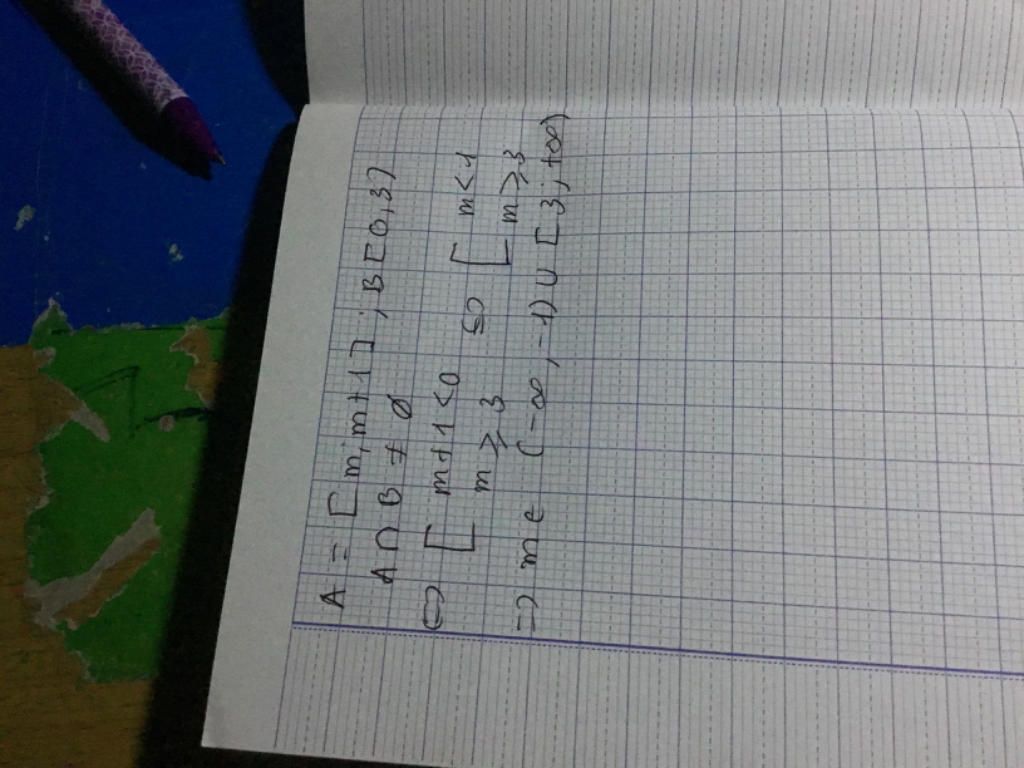 A = [m, m+1] ; B [0,3)
A ∩ B ≠ ∅
⇔ [ m+1 < 0 ⇔ [ m < 1
m ⩾ 3 m ⩾ 3
=> m ∈ (-∞, -1) ∪ [3; +∞)